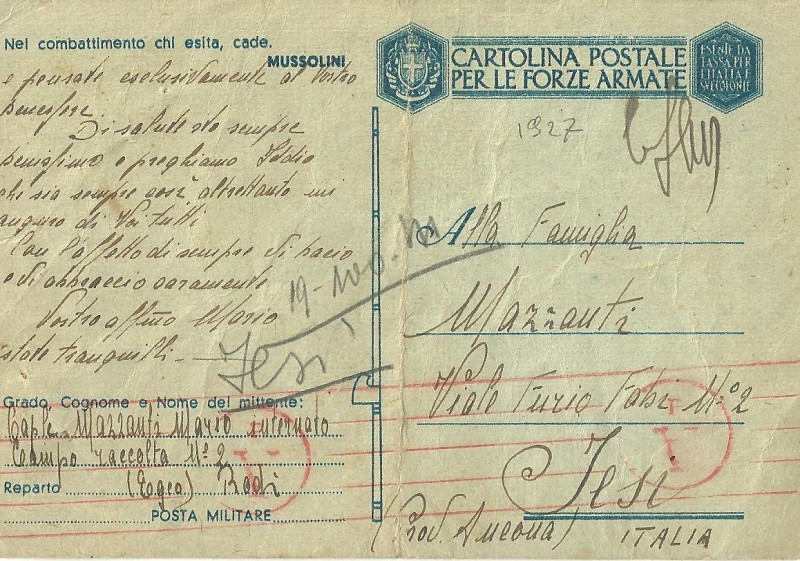 Nel combattimento chi esita, cade.
MUSSOLINI
e pensate esclusivamente al vostro
benessere.
Di salute sto sempre
benissimo e preghiamo Iddio
che sia sempre così altrettanto mi
auguro di Voi tutti
Con l'affetto di sempre Vi bacio
e Vi abbraccio caramente
Vostro affmo Mario
state tranquilli.
Grado, Cognome e Nome del mittente:
Caple Mazzanti Mario internato
Campo raccolta Nº 2
Reparto (Egeo) Rodi
POSTA MILITARE
CARTOLINA POSTALE
PER LE FORZE ARMATE
ESENTE DA
TASSA PER
L'ITALIA E
SVE COLONIE
1927
Alla Famiglia
Mazzanti
Viale Furio Fabi Nº 2
Jesi
(Prov. Ancona)
ITALIA
19-
Jesi